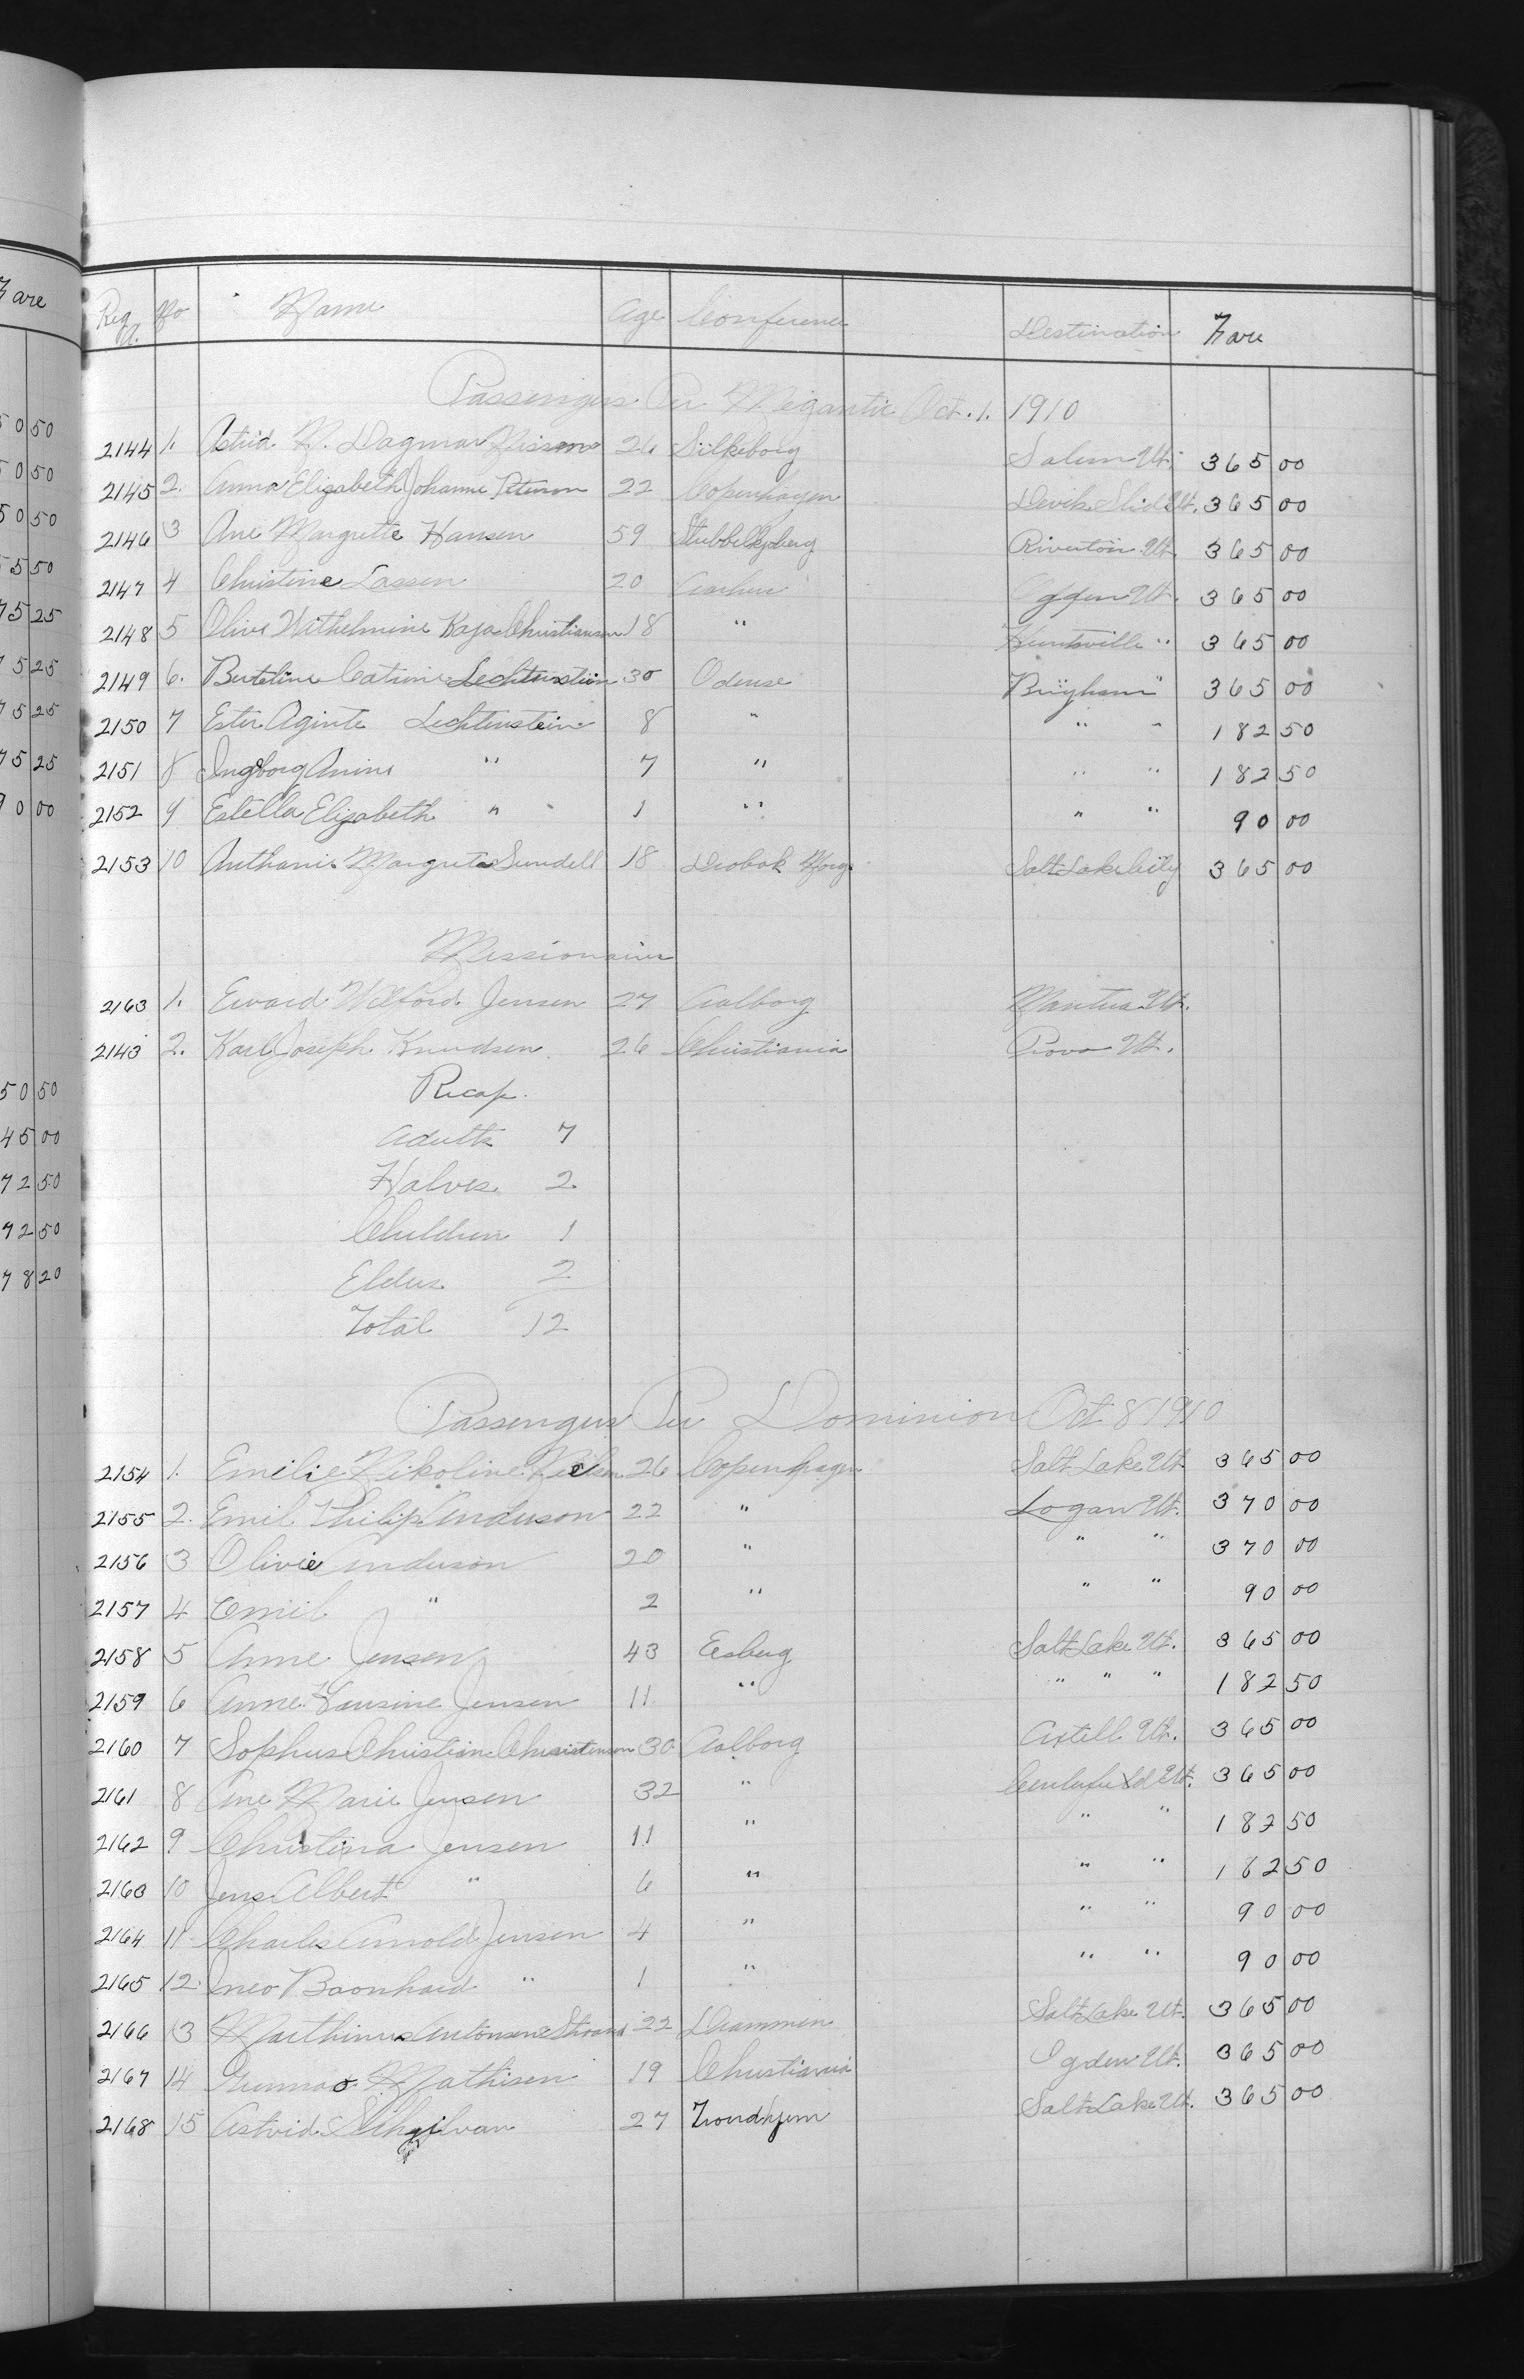 Fare
50 50
50 50
50 50
5 50
75 25
75 25
75 25
75 25
90 00
50 50
45 00
72 50
92 50
78 20
Reg. No No Name Age Conference Destination Fare
Passengers Per Megantic Oct. 1. 1910
2144 1. Astrid N. Dagmar Nisson 26 Silkeborg Salem Ut. 365 00
2145 2. Anna Elizabeth Johanne Peterson 22 Copenhagen Devils Slid Ut. 365 00
2146 3 Ane Margrette Hansen 59 Riverton Ut. 365 00
2147 4 Christine Lassen 20 Aarhus Ogden Ut. 365 00
2148 5 Olive Wilhelmine Kaja Christiansen 18 " Huntsville " 365 00
2149 6. Lechtenstein 30 Odense Brigham " 365 00
2150 7 Ester Aginte Lechtenstein 8 " " " 182 50
2151 8 Ingborg Anine " 7 " " " 182 50
2152 9 Estella Elizabeth " 1 " " " 90 00
2153 10 Margrete Sundell 18 Drobak Norg. Salt Lake City 365 00
Missionaries
2163 1. Ewald Wilford Jensen 27 Aalborg Mantua Ut.
2143 2. Karl Joseph Knudsen 26 Christiania Provo Ut.
Recap.
Adults 7
Halves 2
Children 1
Elders 2
Total 12
Passengers Per Dominion Oct 8 1910
2154 1. Emilie Nikoline Nielsen 26 Copenhagen Salt Lake Ut. 365 00
2155 2. Emil Philip Anderson 22 " Logan Ut. 370 00
2156 3 Olivie Anderson 20 " " " 370 00
2157 4 Emil " 2 " " " 90 00
2158 5 Anne Jensen 43 Esberg Salt Lake Ut. 365 00
2159 6 Anne Laursine Jensen 11 " " " " 182 50
2160 7 Sophus Christian Christenson 30 Aalborg Axtell Ut. 365 00
2161 8 Ane Marie Jensen 32 " Centerfield Ut. 365 00
2162 9 Christina Jensen 11 " " " 182 50
2163 10 Jens Albert " 6 " " " 182 50
2164 11 Charles Arnold Jensen 4 " " " 90 00
2165 12 " 1 " " " 90 00
2166 13 Marthinus Antonsen Strand 22 Drammen Salt Lake Ut. 365 00
2167 14 Gunnar Mathisen 19 Christiania Ogden Ut. 365 00
2168 15 Astrid 27 Trondhjem Salt Lake Ut. 365 00